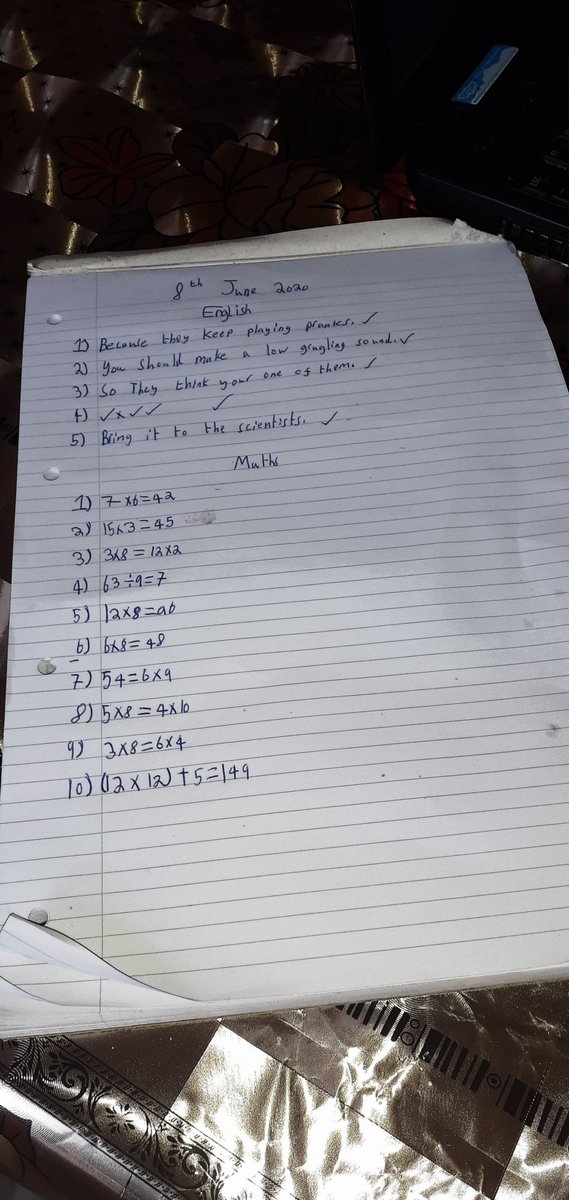 8th June 2020
English
1) Because they keep playing pranks. ✓
2) You should make a low gingling sound. ✓
3) So They think your one of them. ✓
4) ✓x✓✓ ✓
5) Bring it to the scientists. ✓
Maths
1) 7x6=42
2) 15x3=45
3) 3x8=12x2
4) 63÷9=7
5) 12x8=96
6) 6x8=48
7) 54=6x9
8) 5x8=4x10
9) 3x8=6x4
10) (12x12)+5=149